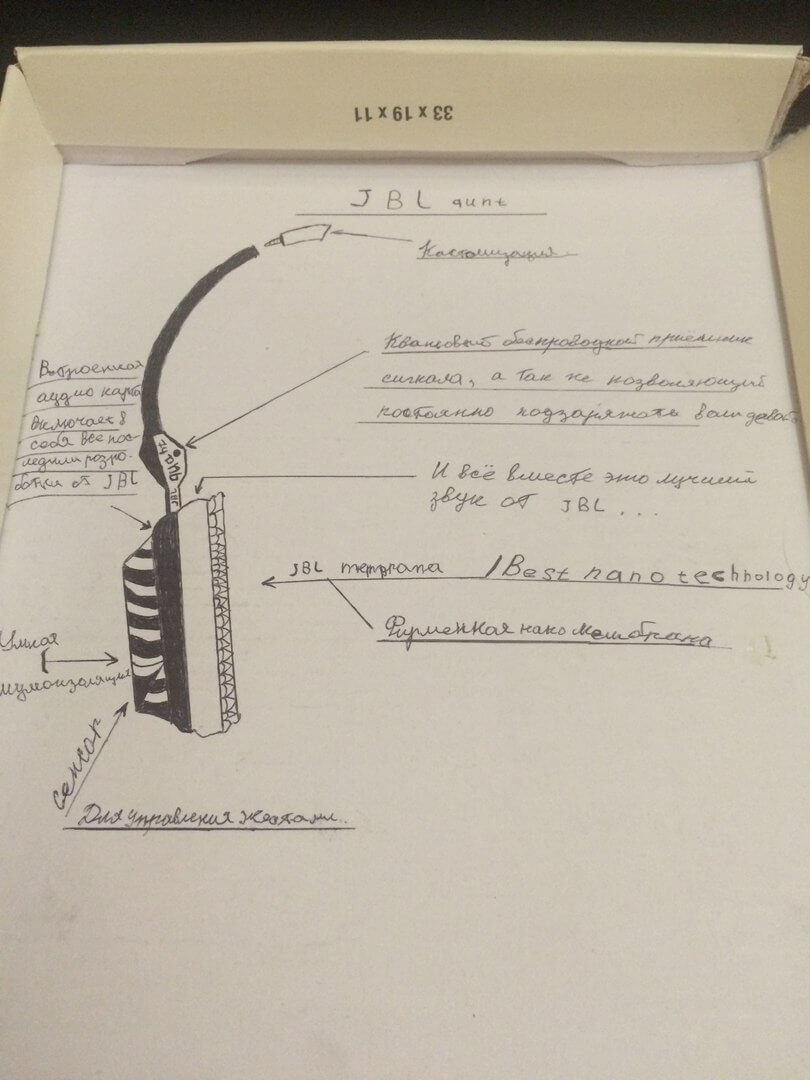 33 x 19 x 11
JBL
Кастомизация
Квантовый беспроводной приемник
сигнала, а так же позволяющий
постоянно подзаряжать
Встроенная
аудио карта
включает в
себя все пос-
ледние разро-
ботки от JBL
И всё вместе это лучший
звук от JBL ...
JBL
JBL мембрана / Best nano technology
Фирменная нано мембрана
Умная
шумоизоляция
сенсор
Для управления жестами.